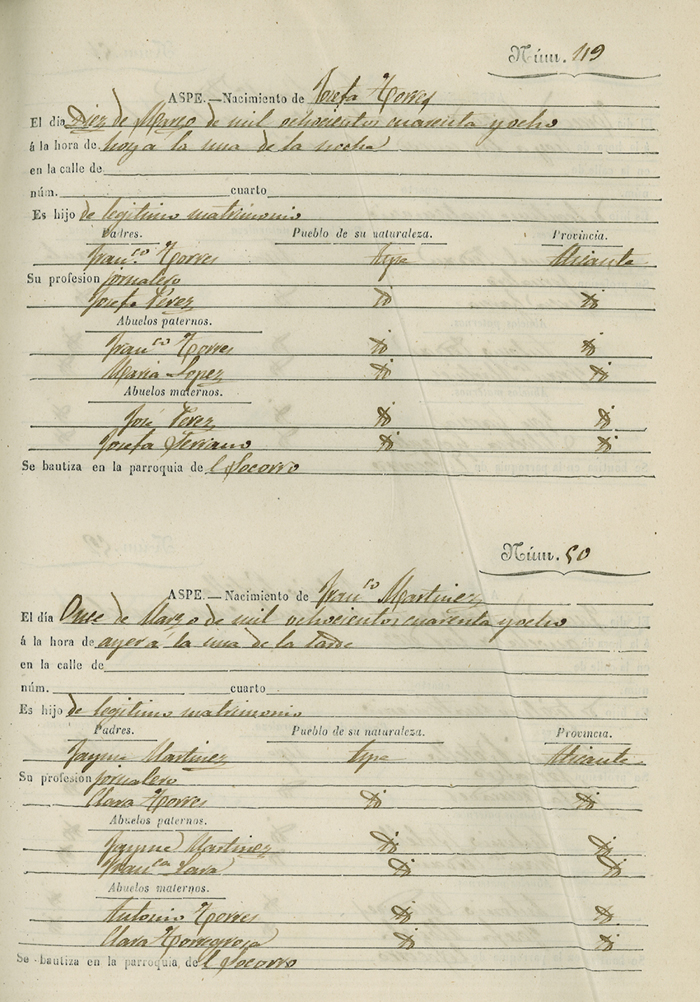 Núm. 119
ASPE.—Nacimiento de Josefa Torres
El dia Diez de Marzo de mil ochocientos cuarenta y ocho
á la hora de hoy a la una de la noche
en la calle de
núm. cuarto
Es hijo de legitimo matrimonio
Padres. Pueblo de su naturaleza. Provincia.
Fran.co Torres Aspe Alicante
Su profesion jornalero
Josefa Pérez
Abuelos paternos.
Fran.co Torres
Maria Lopez
Abuelos maternos.
José Pérez
Josefa Serrano
Se bautiza en la parroquia de l Socorro
Núm. 50
ASPE.—Nacimiento de Fran.co Martinez
El día Once de Marzo de mil ochocientos cuarenta y ocho
á la hora de ayer a la una de la tarde
en la calle de
núm. cuarto
Es hijo de legitimo matrimonio
Padres. Pueblo de su naturaleza. Provincia.
Jayme Martinez Aspe Alicante
Su profesion jornalero
Clara Torres
Abuelos paternos.
Jayme Martinez
Fran.ca
Abuelos maternos.
Antonio Torres
Clara Torregrosa
Se bautiza en la parroquia de l Socorro